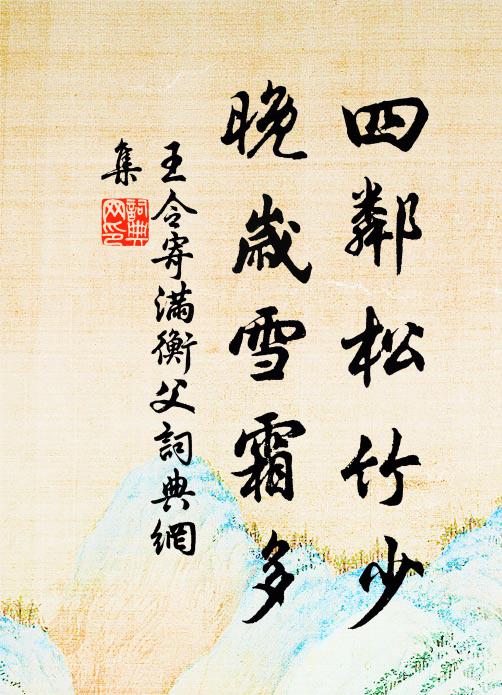 四鄰松竹少
晚歲雪霜多
王令寄滿衡父詞典網
集
詞典
网印